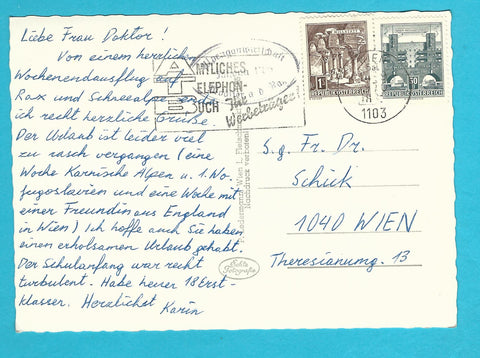 Liebe Frau Doktor!
Von einem herrlichen
Wochenendausflug auf
Rax und Schneealpe
ich recht herzliche Grüsse.
Der Urlaub ist leider viel
zu rasch vergangen (eine
Woche Karnische Alpen u. 1. Wo.
Jugoslavien und eine Woche mit
einer Freundin aus England
in Wien) Ich hoffe auch Sie haben
einen erholsamen Urlaub gehabt.
Der Schulanfang war recht
turbulent. Habe heuer 18 Erst-
klasser. Herzlichst
Karin
MTLICHES
ELEPHON-
BUCH
Ihr
Werbeträger
1103
REPUBLIK ÖSTERREICH
REPUBLIK ÖSTERREICH
S.g. Fr. Dr.
Schük
1040 WIEN
Theresianumg. 13
Nachdruck verboten
Echte
Fotografie